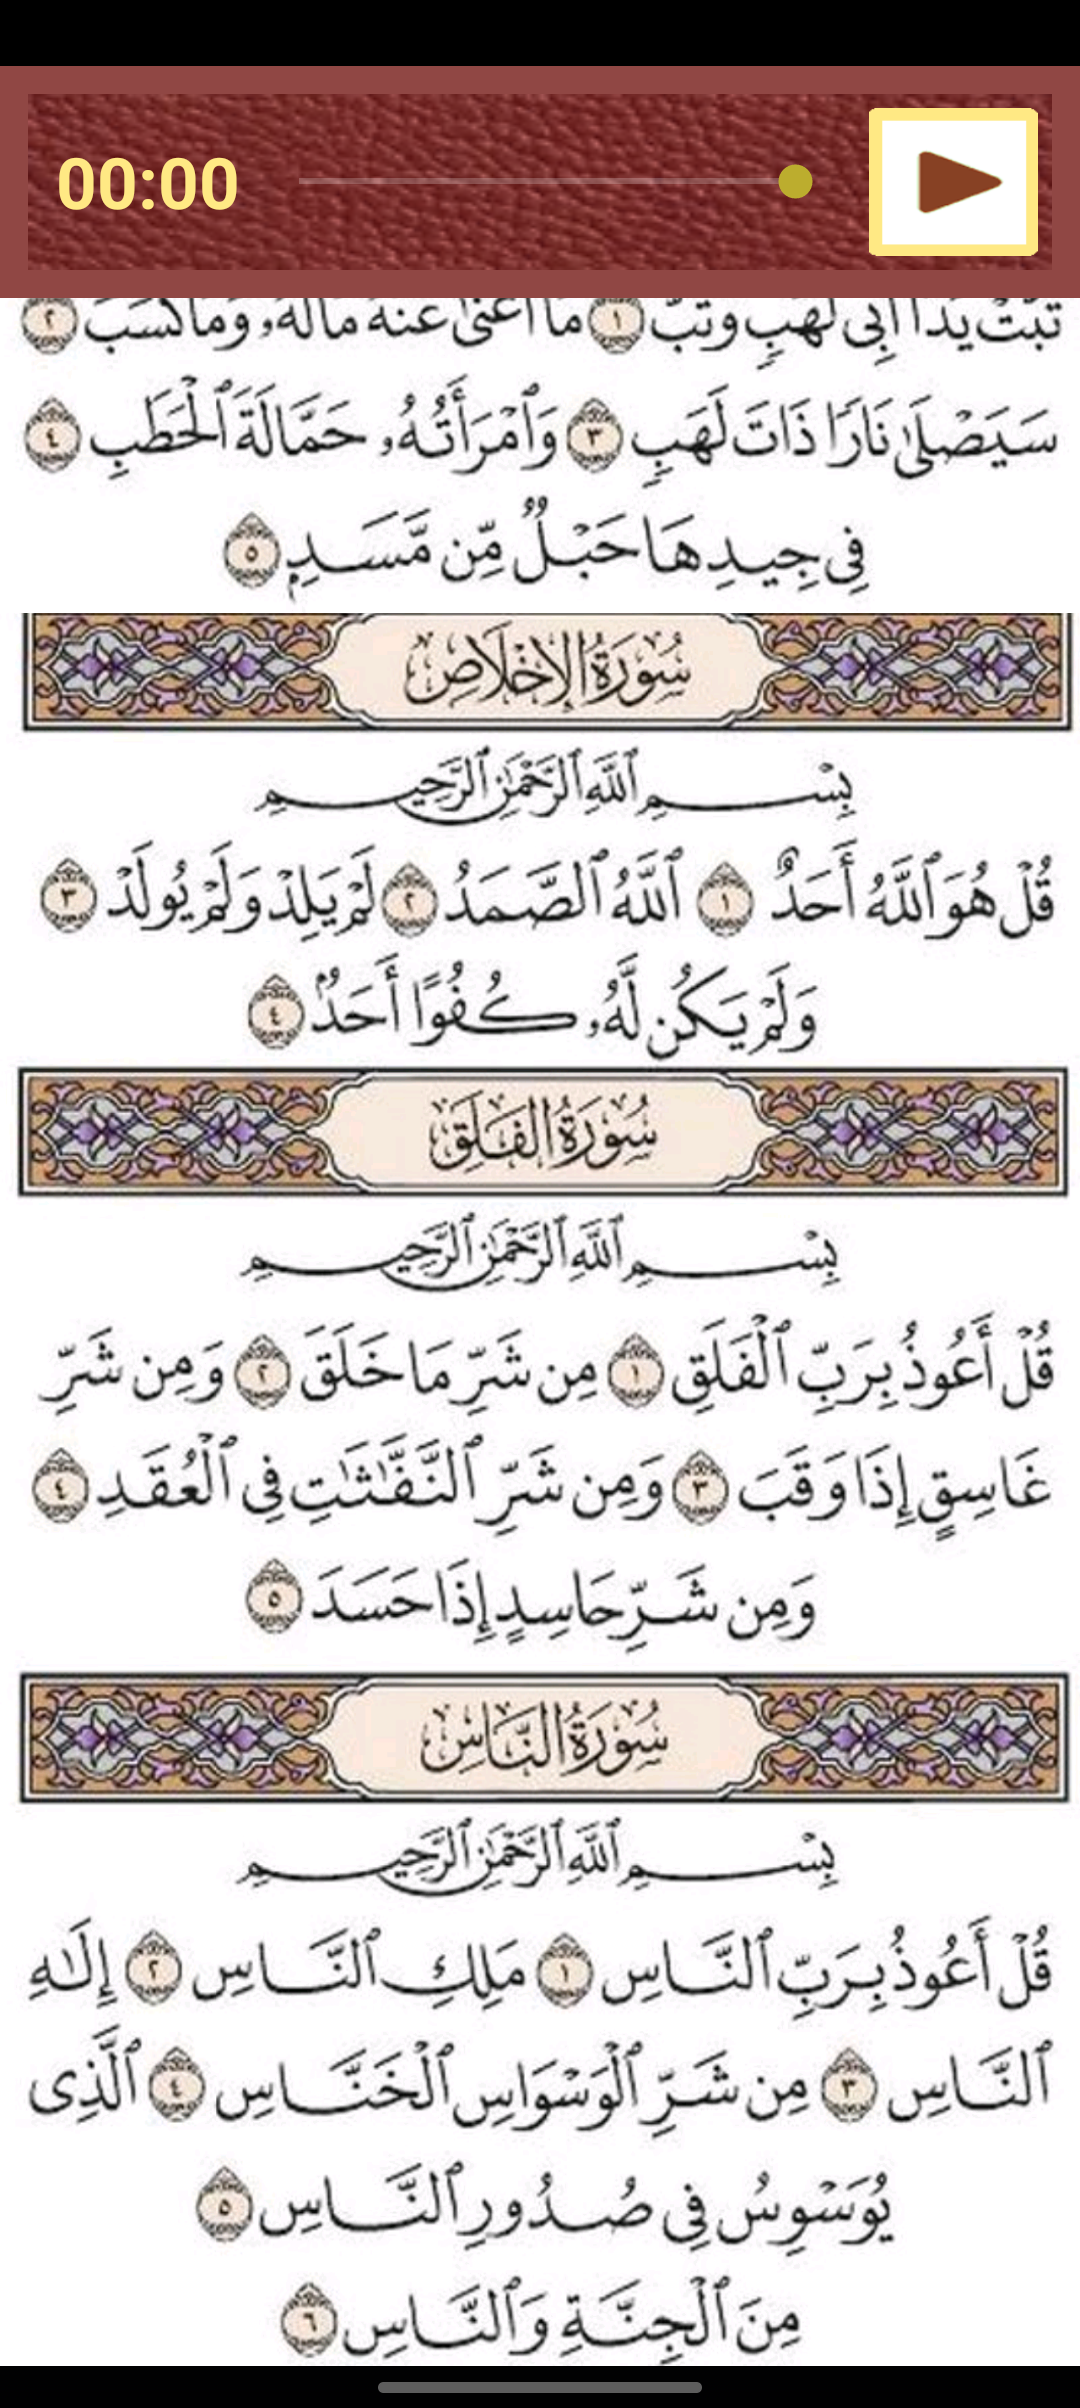 00:00
تَبَّتْ يَدَآ أَبِى لَهَبٍ وَتَبَّ ١ مَآ أَغْنَىٰ عَنْهُ مَالُهُۥ وَمَا كَسَبَ ٢
سَيَصْلَىٰ نَارًا ذَاتَ لَهَبٍ ٣ وَٱمْرَأَتُهُۥ حَمَّالَةَ ٱلْحَطَبِ ٤
فِى جِيدِهَا حَبْلٌ مِّن مَّسَدٍۭ ٥
سُورَةُ الإِخْلَاصِ
بِسْمِ ٱللَّهِ ٱلرَّحْمَٰنِ ٱلرَّحِيمِ
قُلْ هُوَ ٱللَّهُ أَحَدٌ ١ ٱللَّهُ ٱلصَّمَدُ ٢ لَمْ يَلِدْ وَلَمْ يُولَدْ ٣
وَلَمْ يَكُن لَّهُۥ كُفُوًا أَحَدٌۢ ٤
سُورَةُ الفَلَقِ
بِسْمِ ٱللَّهِ ٱلرَّحْمَٰنِ ٱلرَّحِيمِ
قُلْ أَعُوذُ بِرَبِّ ٱلْفَلَقِ ١ مِن شَرِّ مَا خَلَقَ ٢ وَمِن شَرِّ
غَاسِقٍ إِذَا وَقَبَ ٣ وَمِن شَرِّ ٱلنَّفَّٰثَٰتِ فِى ٱلْعُقَدِ ٤
وَمِن شَرِّ حَاسِدٍ إِذَا حَسَدَ ٥
سُورَةُ النَّاسِ
بِسْمِ ٱللَّهِ ٱلرَّحْمَٰنِ ٱلرَّحِيمِ
قُلْ أَعُوذُ بِرَبِّ ٱلنَّاسِ ١ مَلِكِ ٱلنَّاسِ ٢ إِلَٰهِ
ٱلنَّاسِ ٣ مِن شَرِّ ٱلْوَسْوَاسِ ٱلْخَنَّاسِ ٤ ٱلَّذِى
يُوَسْوِسُ فِى صُدُورِ ٱلنَّاسِ ٥
مِنَ ٱلْجِنَّةِ وَٱلنَّاسِ ٦